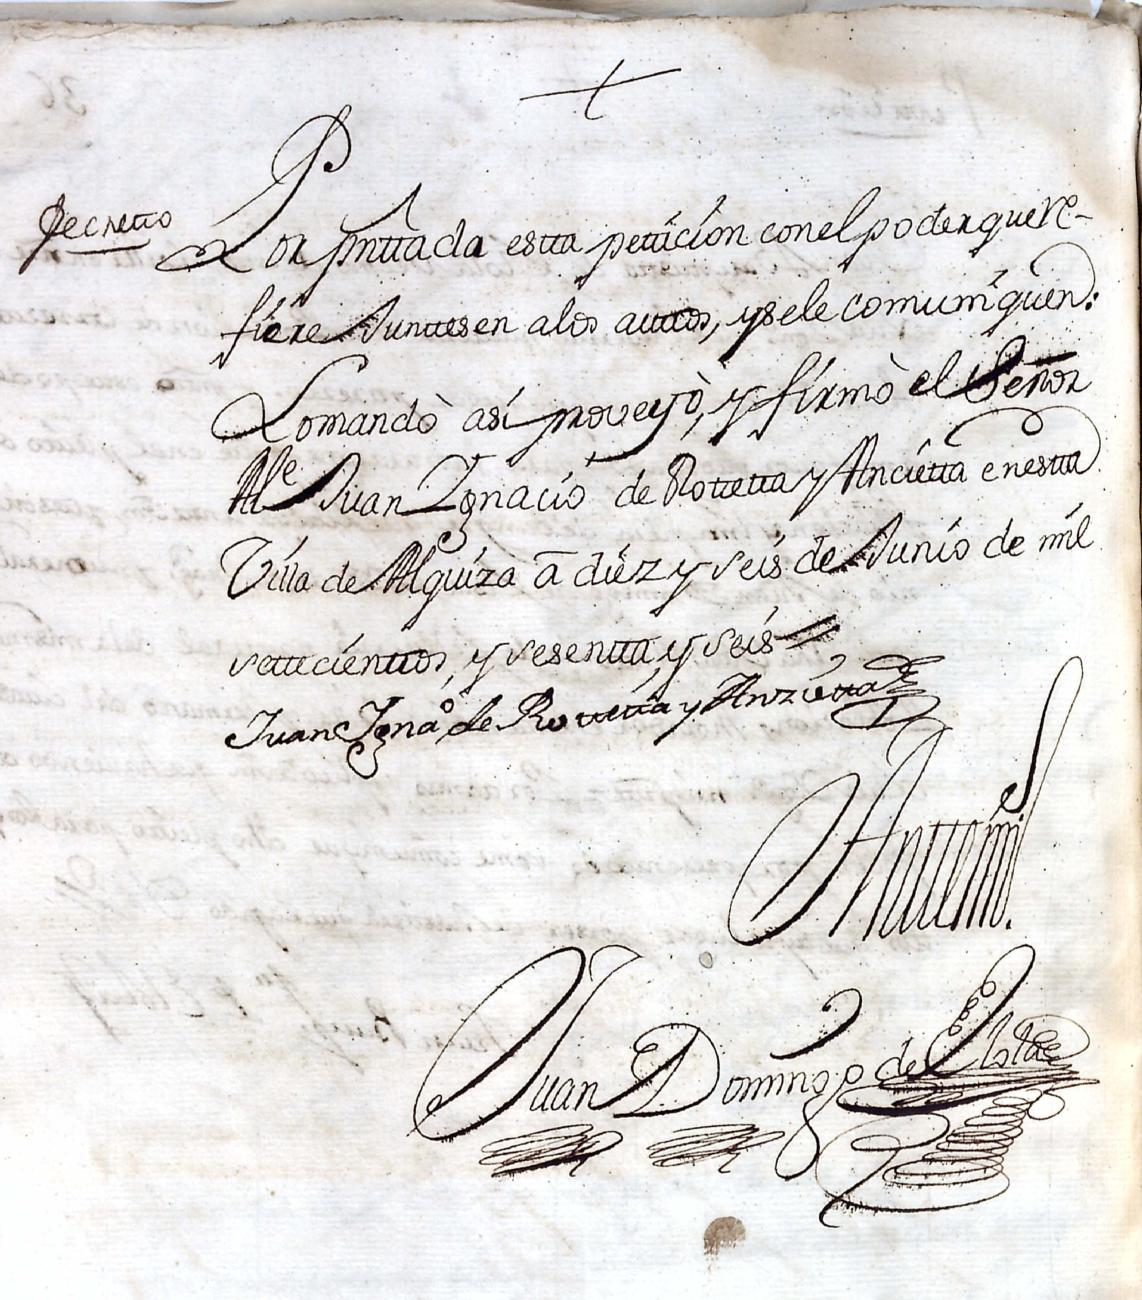 +
Decretto
Por prittada estta pettición con el poder que re-
fiere Junttesen a los auttos, y se le comuniquen:
Lo mandò así proveyò, y firmò el Señor
Alᵉ Juan Ygnacio de Rottetta y Ancietta en estta
Villa de Alquiza a diéz y seis de Junio de mil
settecienttos, y sesentta, y seis
Juan Ygnaº de Rottetta y Anzietta
Anttemi
Juan Domingo de Elola